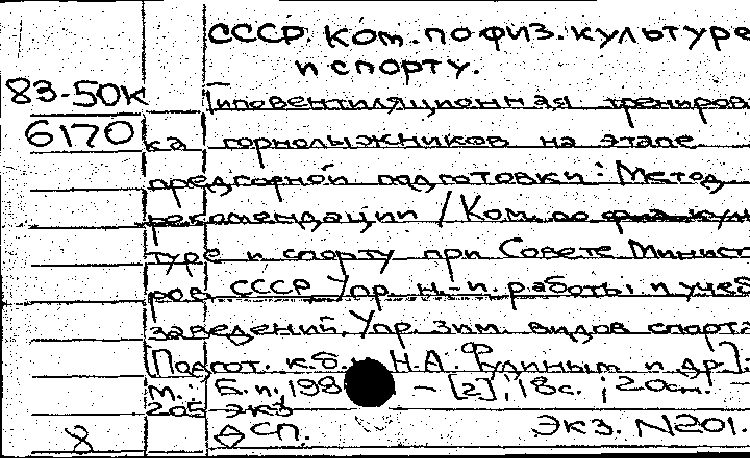 СССР. Ком. по физ. культуре
и спорту.
83-50к Гиповентиляционная трениров
6170 ка горнолыжников на этапе
предгорной подготовки: Метод
рекомендации / Ком. по физ. куль
туре и спорту при Совете Минист
ров СССР Упр. н.-и. работы и учеб
заведений, Упр. зим. видов спорта
[Подгот. к.б.н Н.А. Фудиным и др].
М.: Б.и., 198 - [2], 18 с.; 20 см. -
205 экз
8 ДСП. Экз. N201.